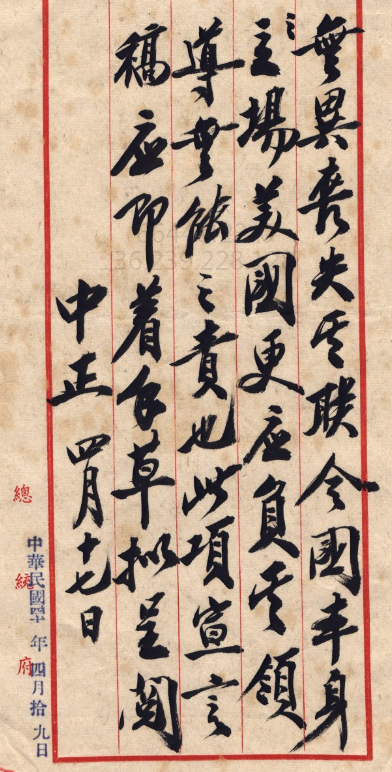 無異喪失其聯合國本身
之立場美國更应負其領
導無能之責也此項宣言
稿应即着手草擬呈閱
中正 四月十七日
總統府
中華民國四十年四月拾九日